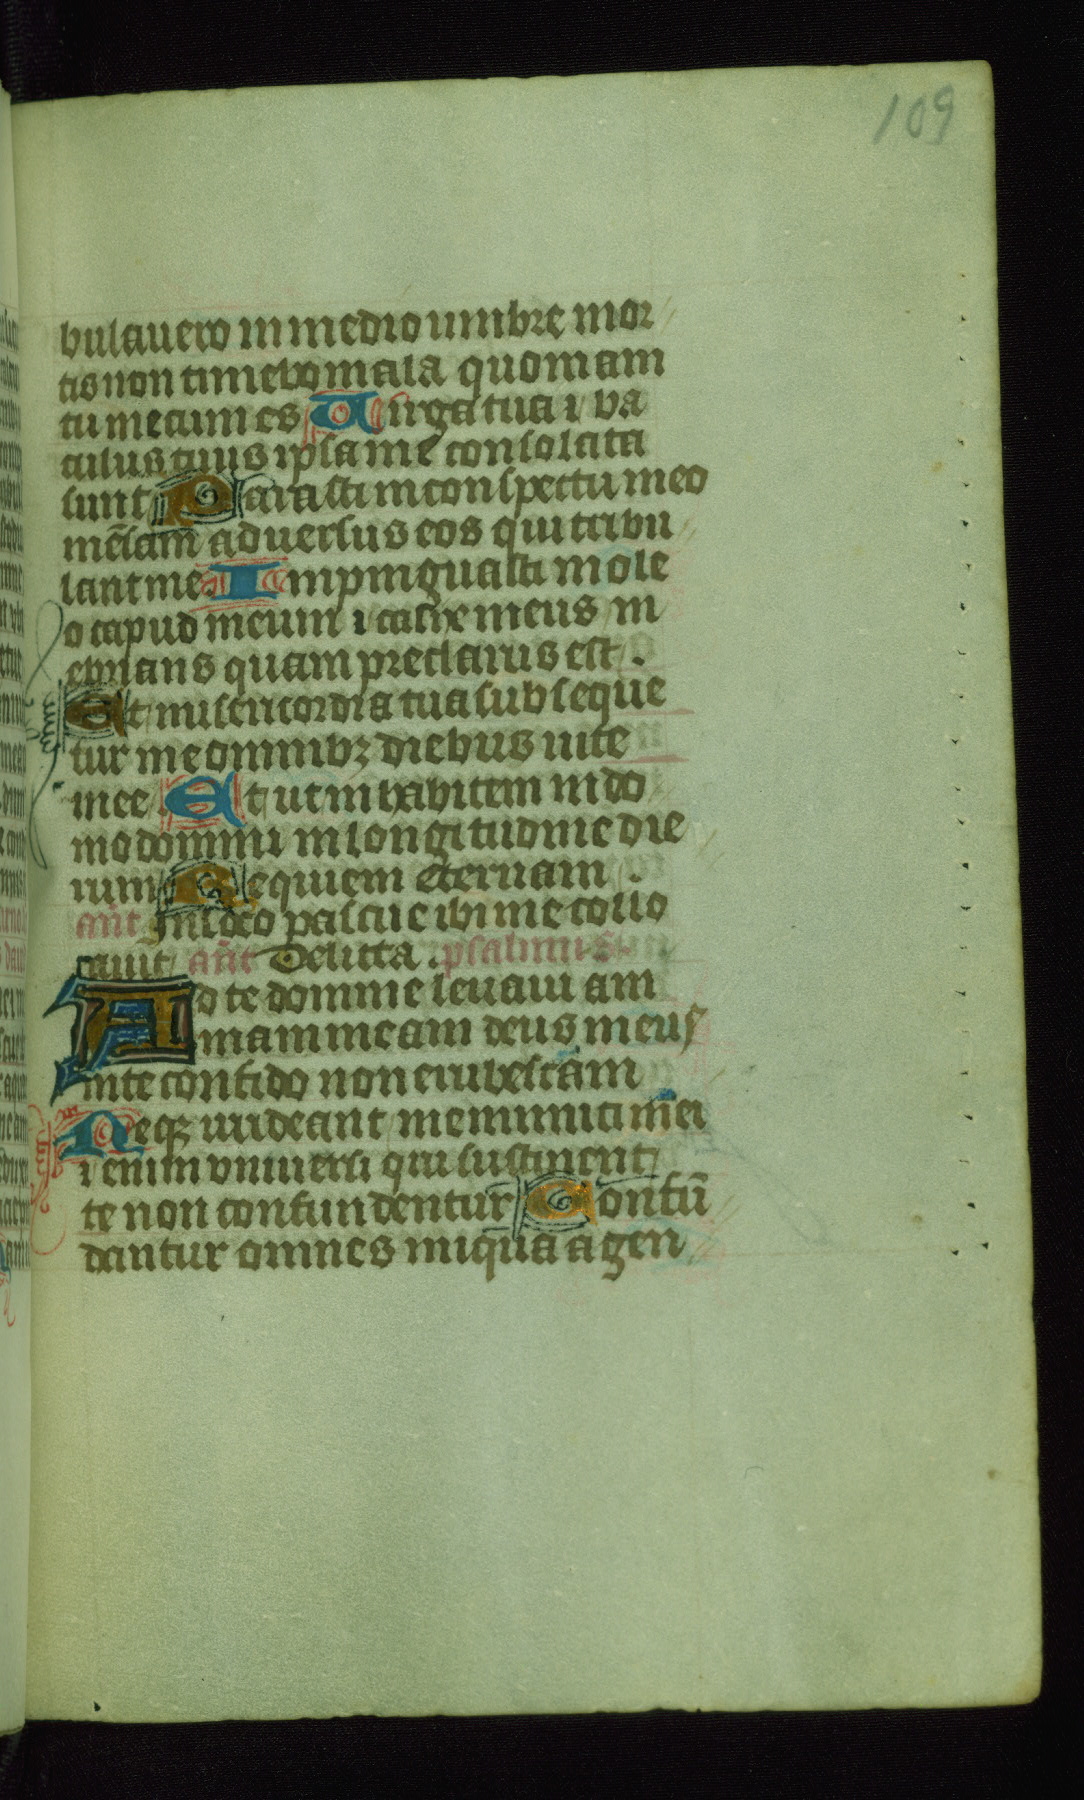 109
bulauero in medio umbre mor
tis non timebo mala quoniam
tu mecum es Uirga tua ⁊ ba
culus tuus ipsa me consolata
sunt Parasti in conspectu meo
mēsam aduersus eos qui tribu
lant me Impinguasti in ole
o capud meum ⁊ calix meus in
ebrians quam preclarus est.
Et misericordia tua subseque
tur me omnibꝫ diebus uite
mee Et ut inhabitem in do
mo domini in longitudine die
rum Requiem eternam.
añt In loco pascue ibi me collo
cauit añt Delicta. psalmus
Ad te domine leuaui am
mam meam deus meus
in te confido non erubescam
Neqꝫ irrideant me inimici mei
⁊ enim vniuersi qui sustinent
te non confundentur Confū
dantur omnes iniqua agen